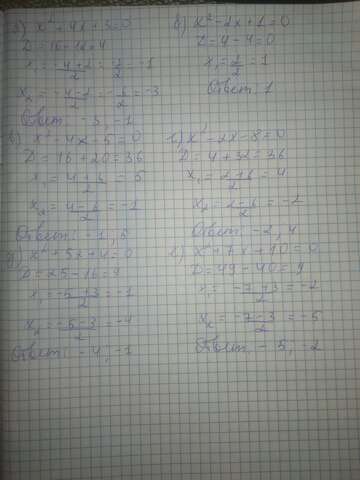 а) x² + 4x + 3 = 0
D = 16 - 12 = 4
x₁ = -4+2/2 = -2/2 = -1
x₂ = -4-2/2 = -6/2 = -3
Ответ: -3, -1
б) x² - 2x + 1 = 0
D = 4 - 4 = 0
x₁ = 2/2 = 1
Ответ: 1
в) x² - 4x - 5 = 0
D = 16 + 20 = 36
x₁ = 4+6/2 = 5
x₂ = 4-6/2 = -1
Ответ: -1, 5
г) x² - 2x - 8 = 0
D = 4 + 32 = 36
x₁ = 2+6/2 = 4
x₂ = 2-6/2 = -2
Ответ: -2, 4
д) x² + 5x + 4 = 0
D = 25 - 16 = 9
x₁ = -5+3/2 = -1
x₂ = -5-3/2 = -4
Ответ: -4, -1
x² + 7x + 10 = 0
D = 49 - 40 = 9
x₁ = -7+3/2 = -2
x₂ = -7-3/2 = -5
Ответ: -5, -2